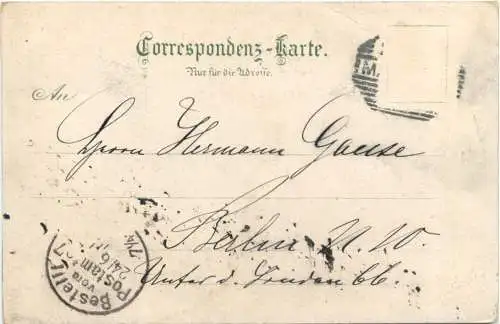 Correspondenz-Karte.
Nur für die Adresse.
M.
An
Herrn Hermann Gause
Berlin N. W.
Unter d. Linden 66.
Bestellt
vom
Postamte 7
24/6
7¼